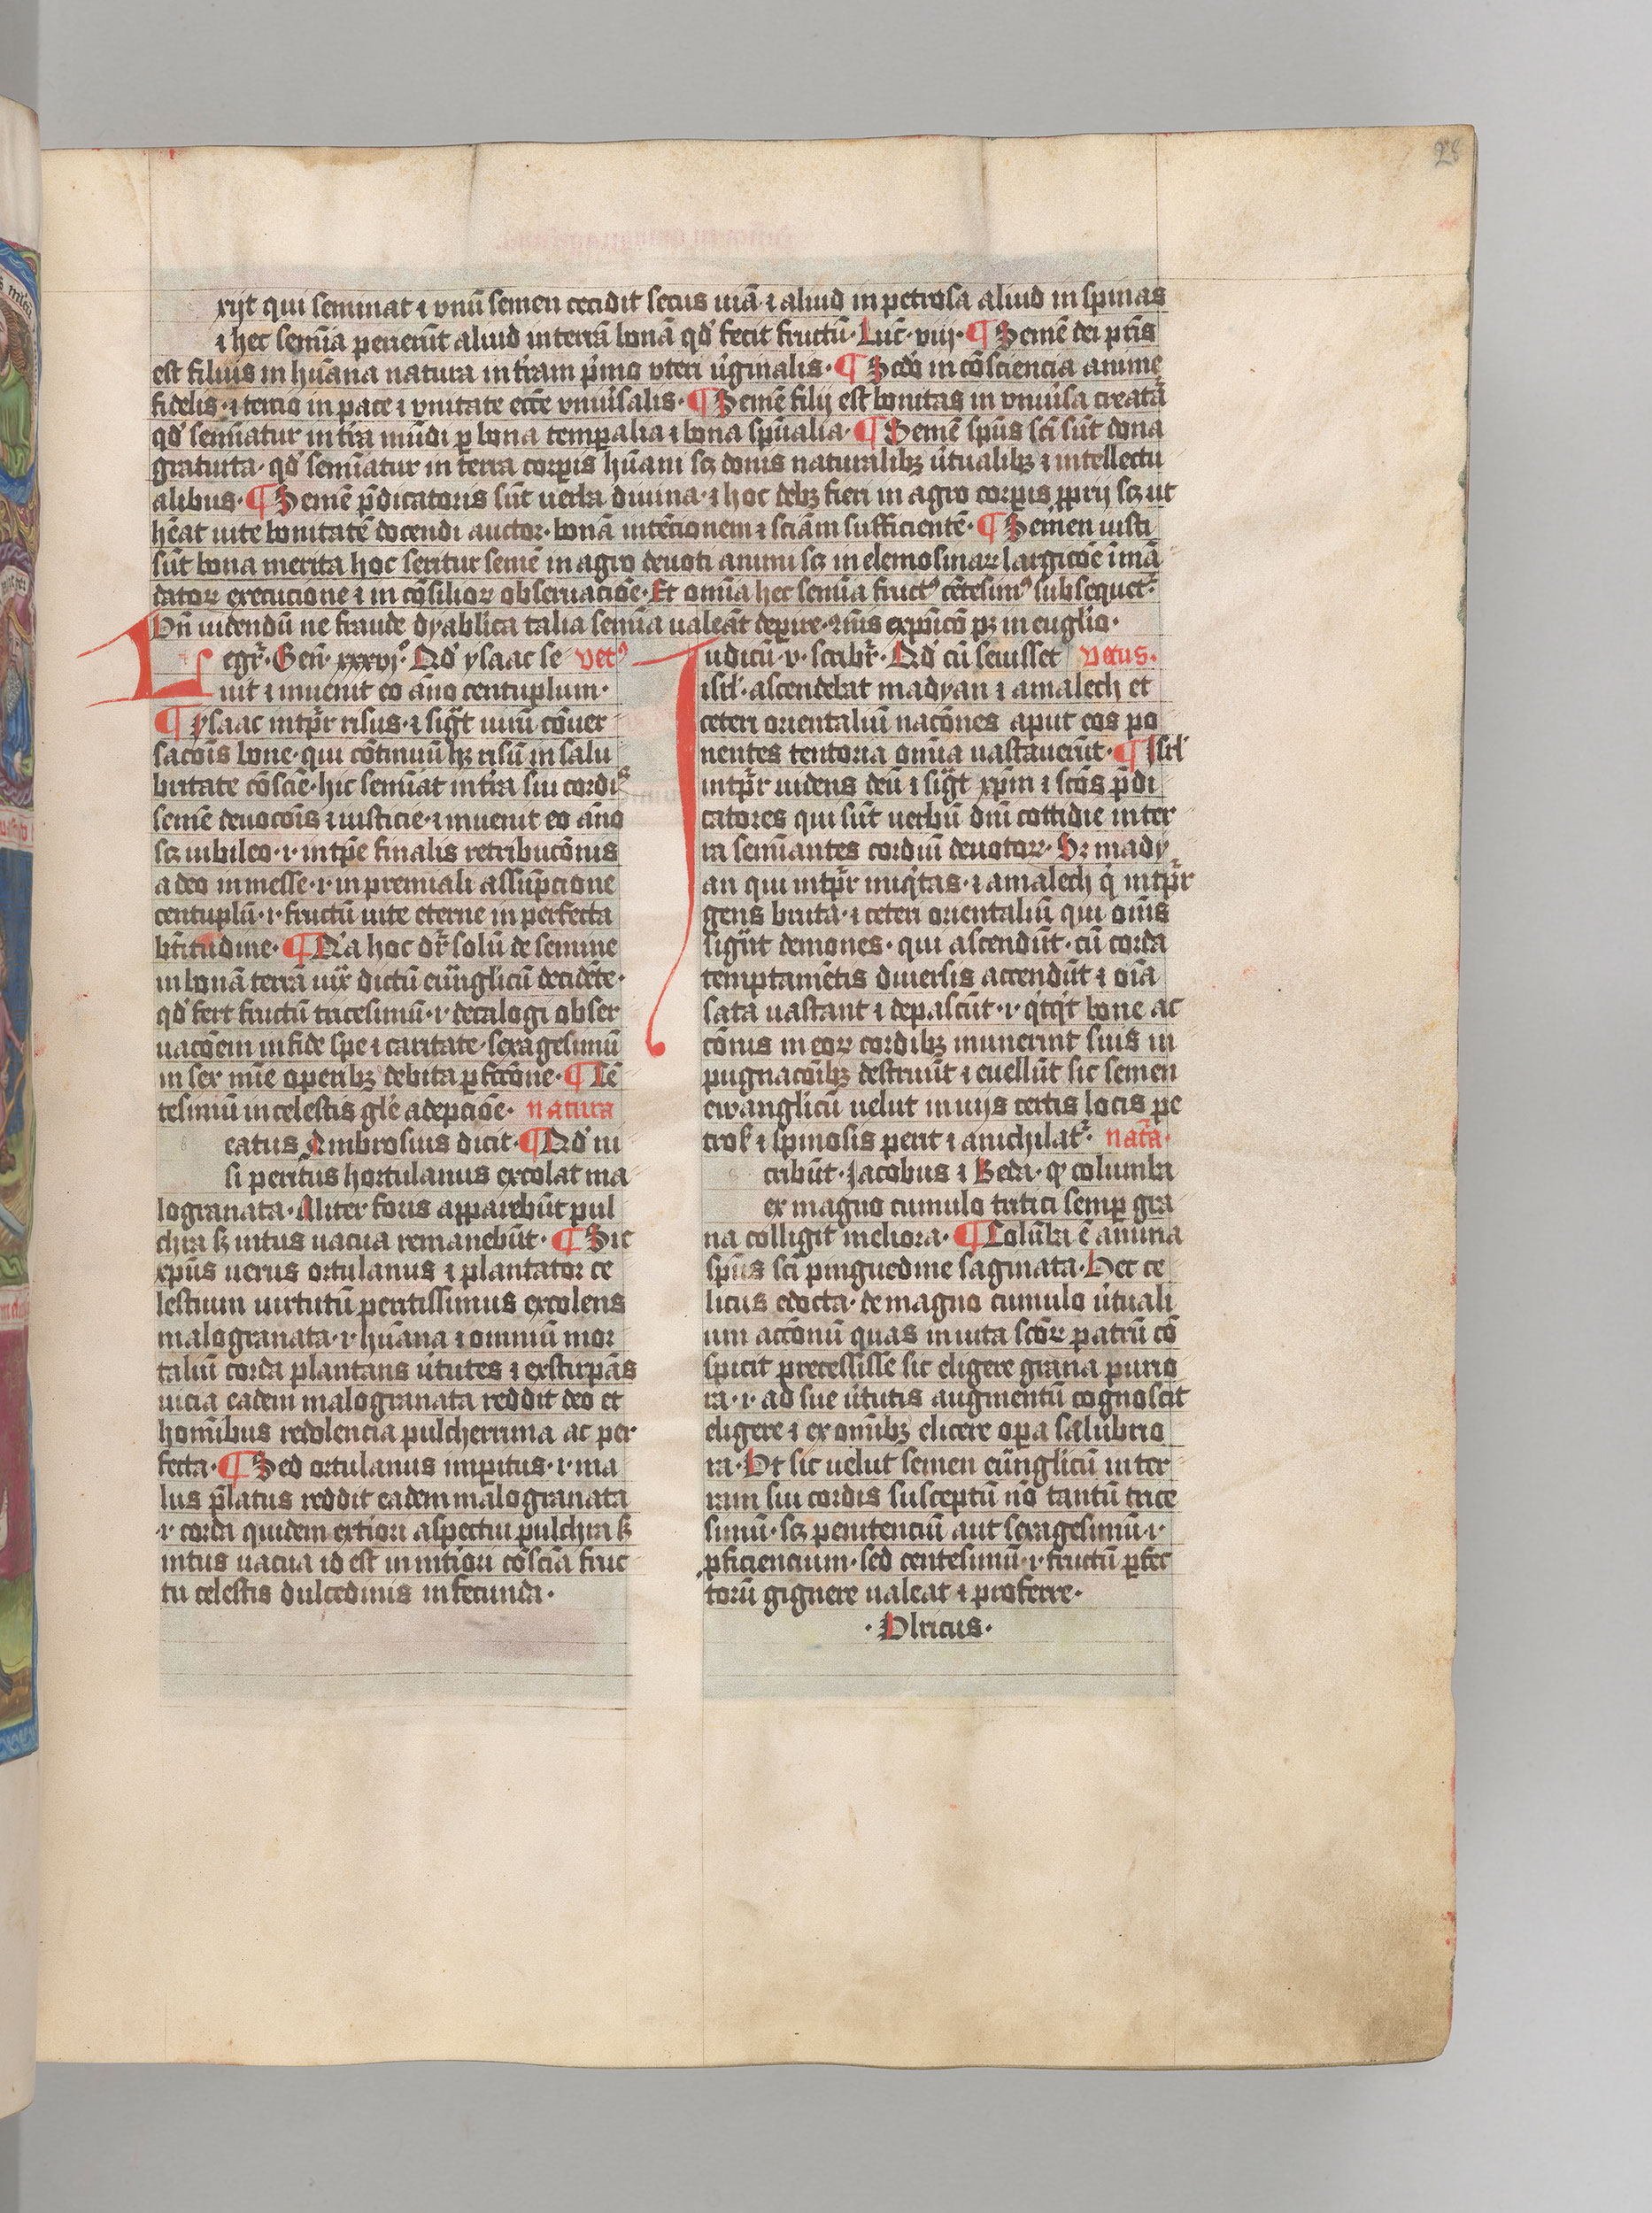 28
xijt qui seminat ⁊ vnū semen cecidit secus uiā ⁊ aliud in petrosa aliud in spinas
⁊ hec semīa perierūt aliud in terrā bonā qd' fecit fructū · Luc̄ · viij · ¶ Semē dei pr̄is
est filius in hūana natura in t̄ram p̄imo vteri u̇ginalis · ¶ Scd̄o in cōsciencia anime
fidelis · ⁊ tercio in pace ⁊ vnitate ecc̄e vniu̇salis · ¶ Semē filij est bonitas in vniu̇sa creat̄a
qd' semīatur in t̄ra mūdi ꝑ bona temꝑalia ⁊ bona spūalia · ¶ Semē spūs sc̄i sūt dona
gratuita · qd' semīatur in terra corꝑis hūani scꝫ donis naturalibꝫ u̇tualibꝫ ⁊ intellectu
alibus · ¶ Semē p̄dicatoris sūt uerba diuina · ⁊ hoc debꝫ fieri in agro corꝑis ꝓprij scꝫ ut
hēat uite bonitatē docendi auctor · bonā intēcionem ⁊ sciām sufficientē · ¶ Semen iusti
sūt bona merita hoc seritur semē in agro deuoti animi scꝫ in elemosinaꝝ largicōe īmā
datoꝝ execucione ⁊ in cōsilioꝝ obseruaciōe · Et omīa hec semīa fructꝰ cētesimꝰ subsequet᷑ ·
Hn̄ uidendū ne fraude dyablica talia semīa ualeāt deꝑire · nīs exp̄icō pꝫ in euglio ·
Legr̄ · Gen̄ · xxxvj° · Qd' ysaac se vetꝰ
uit ⁊ inuenit eo āno centuplum ·
¶ ysaac intp̄r risus · ⁊ sigt̄ uirū cōuer
sacōis bone · qui cōtinuū hꝫ risū in salu
britate cōsciē · hic semīat in t̄ra sui cordis
semē deuocōis ⁊ iusticie · ⁊ inuenit eo āno
scꝫ iubileo · ı · in tp̄e finalis retribucōnis
a deo in messe · ı · in premiali assūpcione
centuplū · ı · fructū uite eterne in perfecta
bt̄itudine · ¶ Na hoc dr̄ solū de semine
in bonā terrā iux̄ dictū eu̇nglicū decidēte ·
qd' fert fructū tricesimū · ı · decalogi obser
uacōem in fide spe ⁊ caritate · sexagesimū
in sex mīe operibꝫ debita ꝑfectōne · ¶ Cē
tesimū in celestis gl̄e adepciōe · natura
eatus Ambrosius dicit · ¶ Qd' ni
si peritus hortulanus excolat ma
logranata · Aliter foris apparebūt pul
chra sꝫ intus uacua remanebūt · ¶ Sic
xp̄us uerus ortulanus ⁊ plantator ce
lestium uirtutū peritissimus excolens
malogranata · ı · hūana ⁊ omniū mor
taliū corda plantans u̇tutes ⁊ exstirpās
uicia eadem malogranata reddit deo et
homībus redolencia pulcherrima ac per
fecta · ¶ Sed ortulanus imꝑitus · ı · ma
lus p̄latus reddit eadem malogranata
· ı · corda quidem ext̄iori aspectu pulchra sꝫ
intus uacua id est in int̄iori cōsciā fruc
tu celestis dulcedinis infecunda ·
Iudicū · v · scribr̄ · Qd' cū seuisset vetus ·
isrl' · ascendebat madyan ⁊ amalech et
ceteri orientaliū nacōnes aput eos po
nentes tentoria omīa uastauerūt · ¶ Isrl'
intp̄r uidens deū ⁊ sigt̄ xp̄m ⁊ scōs p̄di
catores qui sūt uerbū dn̄i cottidie in ter
ra semīantes cordiū deuotoꝝ · Sꝫ mady
an qui intp̄r iniq̇tas · ⁊ amalech q̇ intp̄r
gens bruta · ⁊ ceteri orientaliū qui om̄s
sigūt demones · qui ascendūt · cū corda
temptamētis diuersis accendūt ⁊ oīa
sata uastant ⁊ depascūt · ı · q̇tq̇t bone ac
cōnis in eoꝝ cordibꝫ inuenerint suis in
pugnacōībꝫ destruūt ⁊ euellūt sic semen
ewanglicū uelut in uijs certis locis pe
trosis ⁊ spinosis perit ⁊ anichilat᷑ · nat̄a ·
cribūt · Jacobus ⁊ Beda · qꝭ columba
ex magno cumulo tritici semꝑ gra
na colligit meliora · ¶ Colūba ē anima
spūs sc̄i pinguedine saginata · Hec ce
licus edocta · de magno cumulo u̇tuali
um acc̄onū quas in uita scōꝝ patrū cō
spicit precessisse sic eligere grana purio
ra · ı · ad sue u̇tutis augmentū cognoscit
eligere ⁊ ex omībꝫ elicere oꝑa salubrio
ra · Vt sic uelut semen eu̇nglicū in ter
ram sui cordis susceptū nō tantū trice
simū · scꝫ penitenciū aut sexagesimū · ı ·
ꝓficiencium · sed centesimū · ı · fructū ꝑfec
torū gignere ualeat ⁊ proferre ·
· Vlricus ·